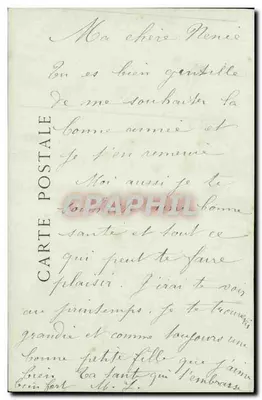 Ma chère Nenée
Tu es bien gentille
de me souhaiter la
bonne année et
je t'en remercie
Moi aussi je te
souhaite une bonne
santé et tout ce
qui peut te faire
plaisir. J'irai te voir
au printemps. Je te trouverai
grandie et comme toujours une
bonne petite fille que j'aime
bien. Ta tante qui t'embrasse
bien fort M. L.
CARTE POSTALE
PHIL